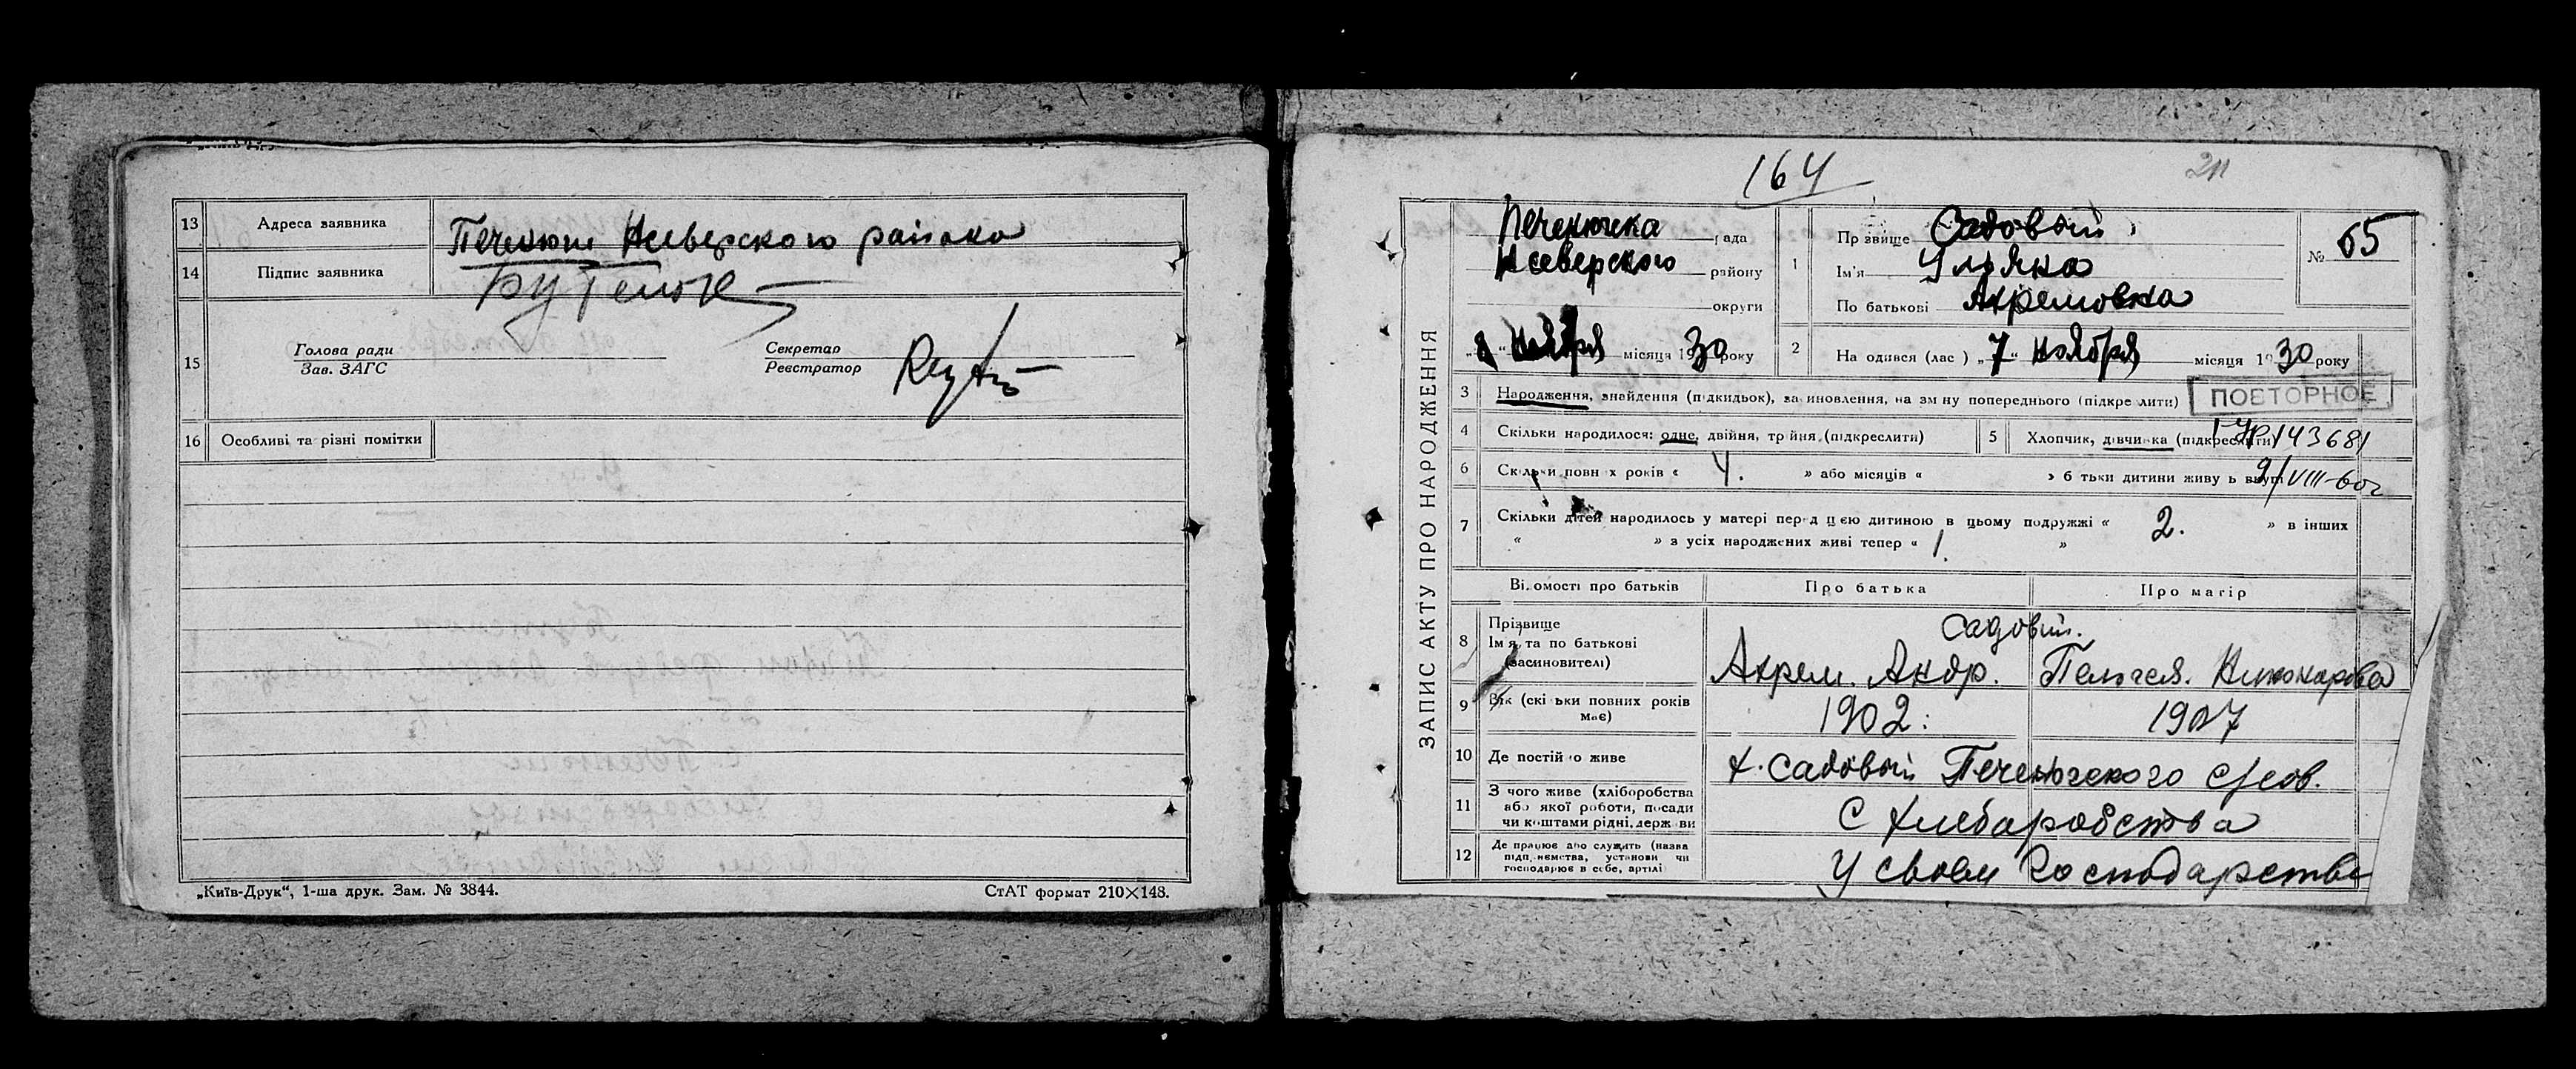 13 Адреса заявника Печенюги Н Северского района
14 Підпис заявника
15 Голова ради
Зав. ЗАГС
Секретар
Реєстратор
16 Особливі та різні помітки
„Київ-Друк“, 1-ша друк. Зам. № 3844.
СтАТ формат 210×148.
164
211
ЗАПИС АКТУ ПРО НАРОДЖЕННЯ
рада
Н Северского району
округи
„8“ Ноября місяця 1930 року
1 Прізвище Садовый
Ім'я Ульяна
По батькові Ахремовна
№ 65
2 На одився (лас ) „7“ Ноября місяця 1930 року
3 Народження, знайдення (підкидьок), за иновлення, на зм ну попереднього (підкре лити)
ПОВТОРНОЕ
4 Скільки народилося: одне, двійня, тр йня (підкреслити)
5 Хлопчик, дівчинка (підкреслити)
143681
6 Скільки повн х років « 4. » або місяців « » б тьки дитини живу ь вкупі
9/VIII-60г
7 Скільки дітей народилось у матері перед цією дитиною в цьому подружжі « 2. » в інших
« » з усіх народжених живі тепер « 1. »
Відомості про батьків Про батька Про матір
8 Прізвище
Ім'я та по батькові
(засиновителі)
Садовый.
Ахрем. Андр. Пелагея.
9 Вік (скі ьки повних років
має)
1902. 1907
10 Де постій о живе х. Садовый Печенюгского с/сов.
11 З чого живе (хліборобства
або якої роботи, посади
чи коштами рідні, держ ви
С хлебаробства
12 Де працює або служить (назва
підп. иємства, установи чи
господарює в себе, артілі
У своем господарстве